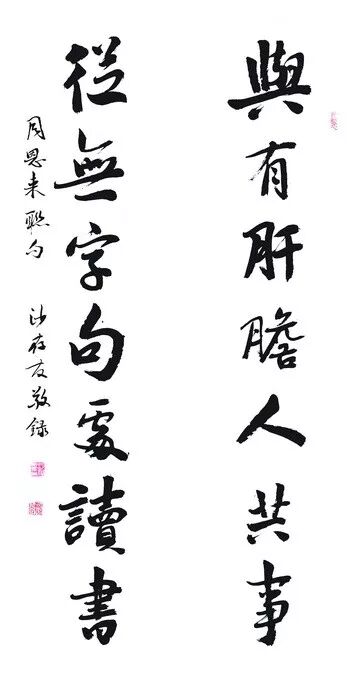 與有肝膽人共事
從無字句處讀書
周恩来聯句 沙存友敬録